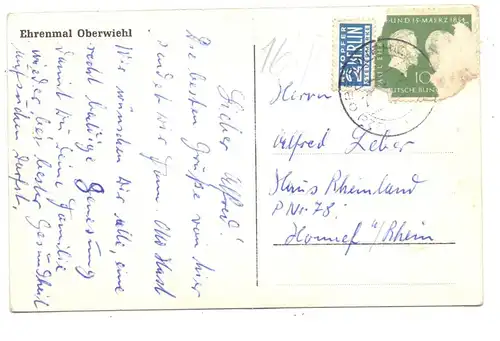 Ehrenmal Oberwiehl
Lieber Alfred!
Die besten Grüße von hier
sendet Dir Fam. Otto Hast
Wir wünschen Dir alle, eine
recht baldige Genesung
damit Du Deine Familie
wieder bei bester Gesundheit
aufsuchen darfst.
16/
NOTOPFER
2 BERLIN
STEUERMARKE
UND 15 MAERZ 1854
10
DEUTSCHE BUND
Herrn
Alfred Leber
Haus Rheinland
P Nr. 78,
Honnef a/Rhein